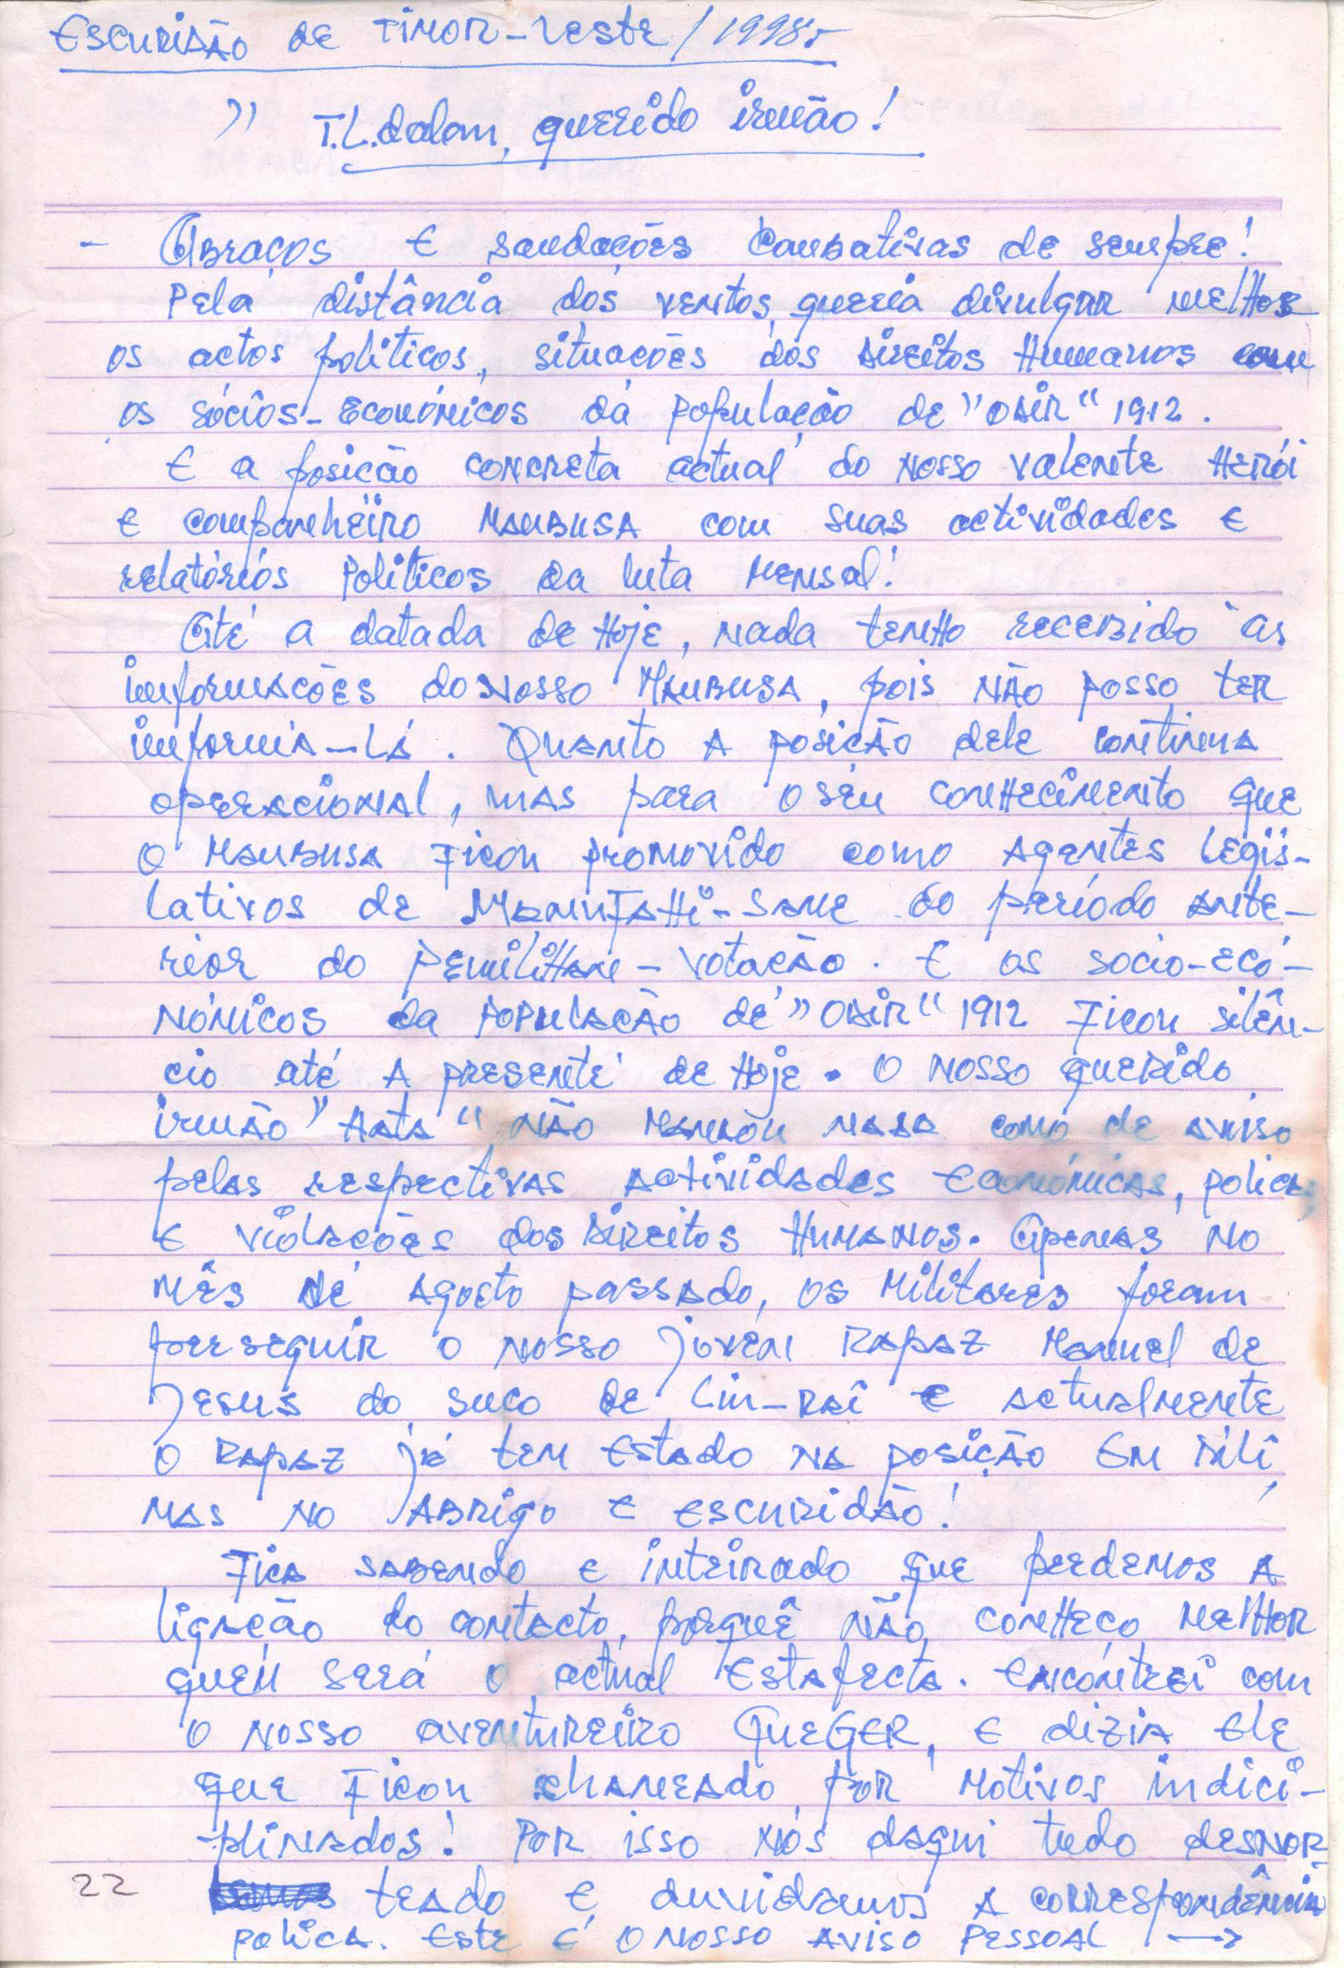 Escuridão de Timor-Leste / 1998.
" T.L.dalan, querido irmão!
- Abraços e saudações Combativas de sempre!
Pela distância dos ventos, queria divulgar melhor
os actos políticos, situações dos Direitos Humanos com
os sócios-económicos da população de "ODIR" 1912.
E a posição concreta actual do nosso valente Herói
e companheiro MAUBUSA com suas actividades e
relatórios Políticos da luta Mensal!
Até a datada de Hoje, nada tenho recebido as
informações do Nosso MAUBUSA, pois não posso ter
informá-Lá. Quanto a posição dele continua
operacional, mas para o seu conhecimento que
o MAUBUSA Ficou promovido como Agentes Legis-
lativos de Manufahi-Same do período ante-
rior do Pemilihan-Votação. E os socio-eco-
nómicos da população de "ODIR" 1912 Ficou silên-
cio até a presente de Hoje. O Nosso querido
irmão "Aata" não Mandou nada como de aviso
pelas respectivas Actividades Económicas, policas
e violações dos Direitos Humanos. Apenas no
mês de Agosto passado, os Militares foram
perseguir o nosso jovem Rapaz Manuel de
Jesus do suco de Lin-Raî e actualmente
o Rapaz já tem Estado na posição Em Díli,
mas no Abrigo e escuridão!
Fica sabendo e inteirado que perdemos a
ligação do contacto, porquê não conheço melhor
quem será o actual Estafecta. Encontrei com
o nosso aventureiro QueGER, e dizia Ele
que Ficou chaneado por Motivos indici-
plinados! Por isso nós daqui tudo desnor-
teado e duvidamos a correspondência
polica. Este é o nosso aviso pessoal / →
22